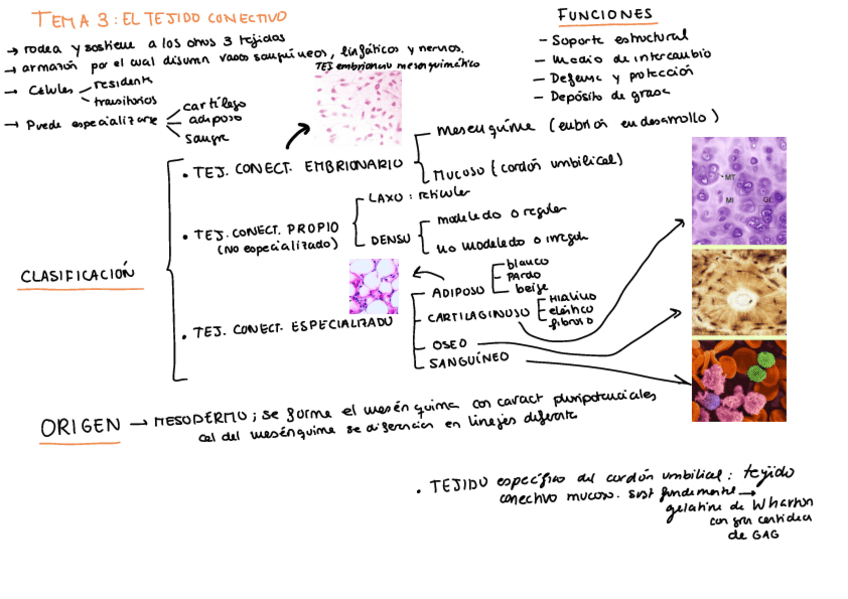 TEMA 3: EL TEJIDO CONECTIVO
→ rodea y sostiene a los otros 3 tejidos
→ armazón por el cual discurren vasos sanguíneos, linfáticos y nervios.
→ Células
residentes
transitorios
→ Puede especializarse
cartílago
adiposo
sangre
TEJ embrionario mesenquimático
FUNCIONES
- Soporte estructural
- Medio de intercambio
- Defensa y protección
- Depósito de grasa
CLASIFICACIÓN
• TEJ. CONECT. EMBRIONARIO
Mesenquima (embrión en desarrollo)
Mucoso (cordón umbilical)
• TEJ. CONECT. PROPIO
(No especializado)
LAXO: reticular
DENSO
modelado o regular
no modelado o irregular
• TEJ. CONECT. ESPECIALIZADO
ADIPOSO
blanco
Pardo
beige
CARTILAGINOSO
Hialino
elástico
fibroso
OSEO
SANGUÍNEO
MT
MI
GI
ORIGEN → MESODERMO; se forma el mesénquima con caract pluripotenciales
cel del mesénquima se diferencian en linajes diferente
• TEJIDO específico del cordón umbilical: tejido
conectivo mucoso. sust fundamental →
gelatina de Wharton
con gran cantidad
de GAG